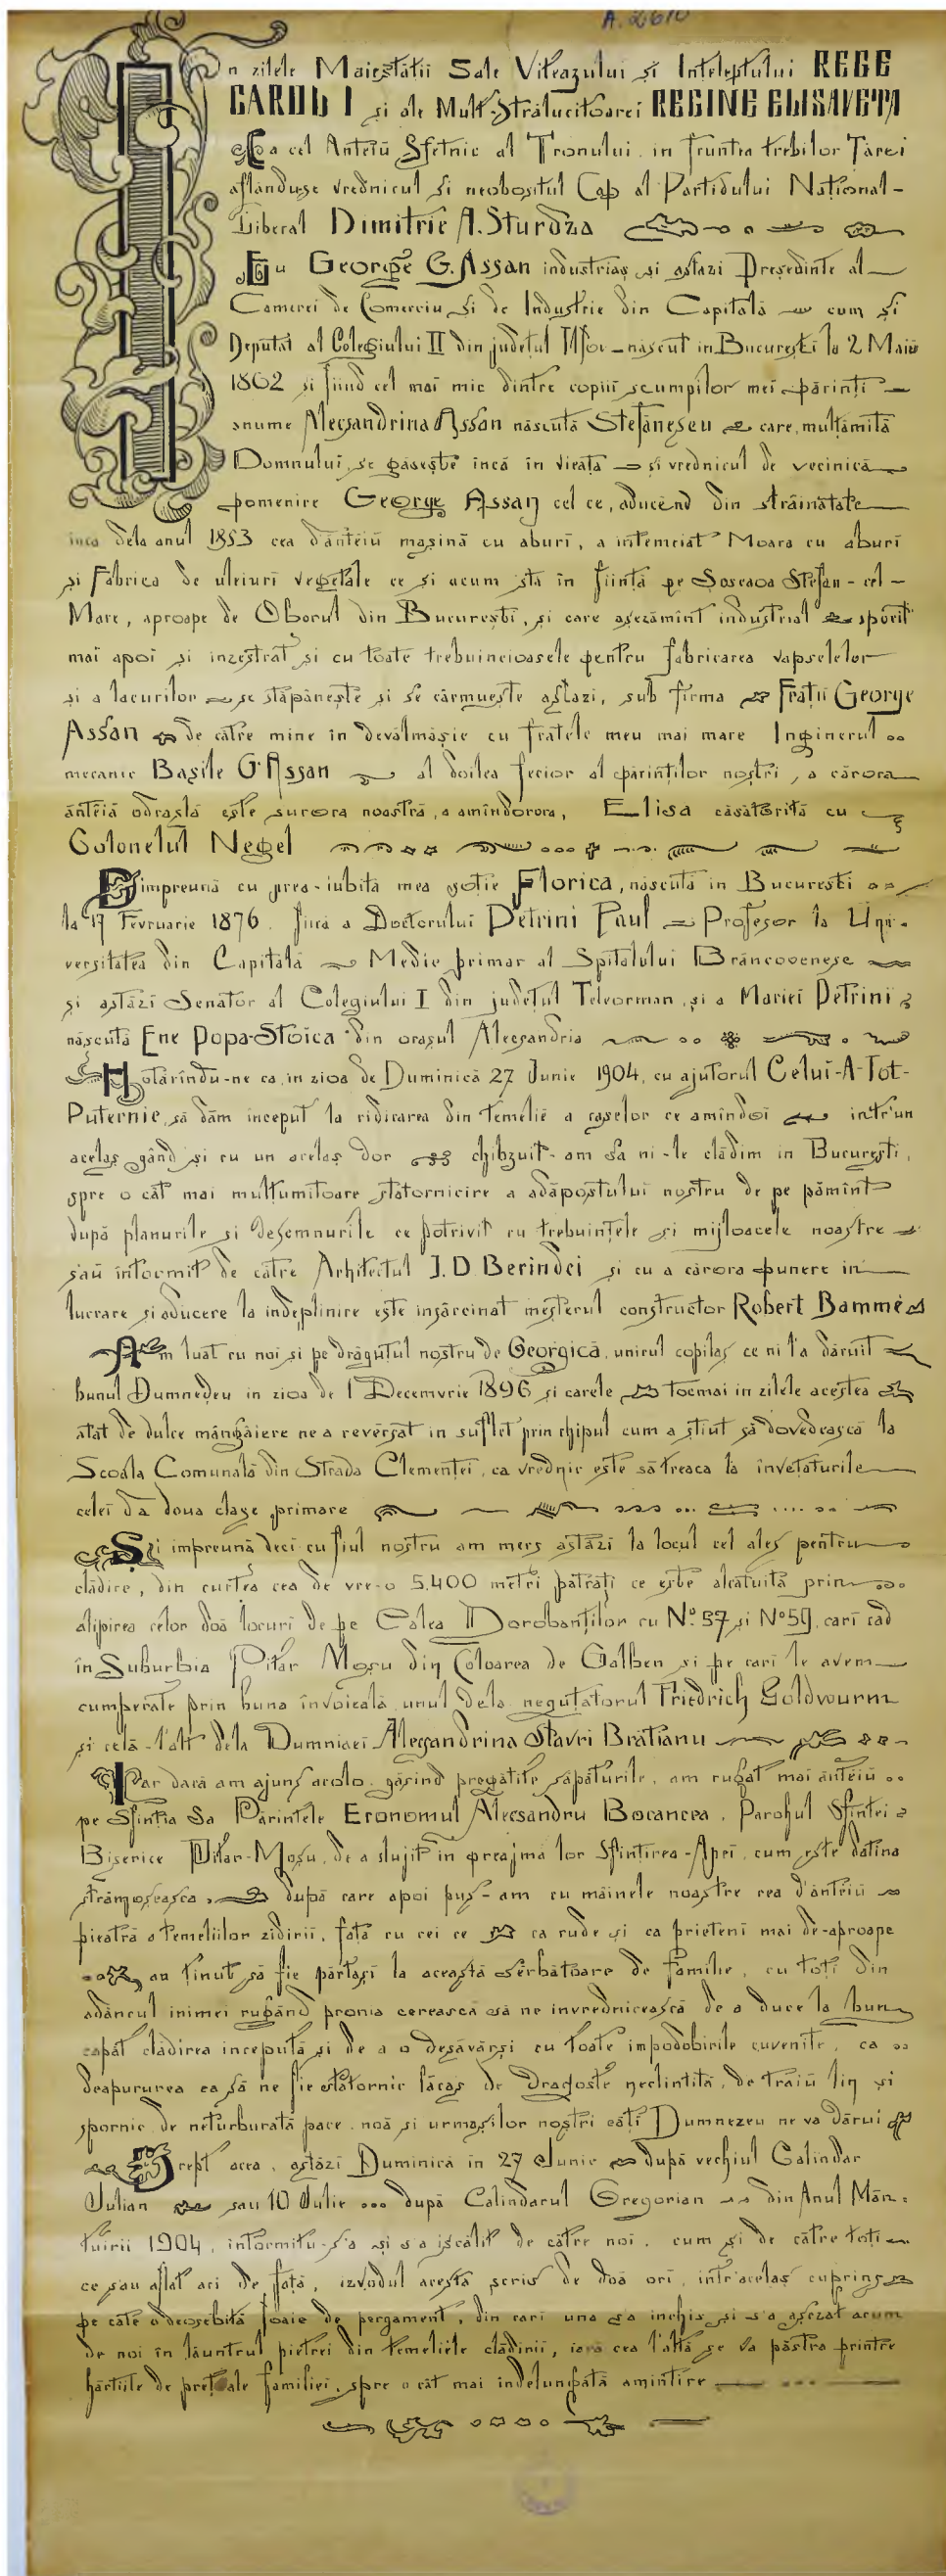 A. 2610
În zilele Maiestății Sale Viteazului și Înțeleptului REGE
CAROL I și ale Mult-Strălucitoarei REGINE ELISAVETA
Ca cel Ânteiŭ Sfetnic al Tronului, in fruntea trebilor Țărei
aflânduse vrednicul și neobositul Cap al Partidului Național-
Liberal Dimitrie A. Sturdza
Eu George G. Assan industriaș și astăzi Președinte al
Camerei de Comerciu și de Industrie din Capitală cum și
Deputat al Colegiului II din județul Ilfov – născut in Bucureștĭ la 2 Maiŭ
1862 și fiind cel mai mic dintre copiii scumpilor mei părinți
anume Alecsandrina Assan născută Stefănescu care, mulțămită
Domnului, se găsește încă în vieață și vrednicul de vecinică
pomenire George Assan cel ce, aducênd din străinătate
inca dela anul 1853 cea d'ânteiŭ mașină cu aburĭ, a intemeiat Moara cu aburĭ
și Fabrica de uleiuri vegetale ce și acum stă în ființă pe Șoseaoa Ștefan-cel-
Mare, aproape de Oborul din București, și care așezămînt industrial sporit
mai apoi și inzestrat și cu toate trebuincioasele pentru fabricarea vapselelor
și a lacurilor se stăpânește și se cârmuește astăzi, sub firma Frații George
Assan de către mine în devălmășie cu fratele meu mai mare Inginerul
mecanic Basile G. Assan al doilea fecior al părinților noștri, a cărora
ânteiă odraslă este surora noastră, a amîndorora, Elisa căsătorită cu
Colonelul Negel
Dimpreună cu prea-iubita mea soție Florica, născută in București
la 17 Fevruarie 1876. fiică a Doctorului Petrini Paul Profesor la Uni-
versitatea din Capitală Medic primar al Spitalului Brâncovenesc
și astăzi Senator al Colegiului I din județul Teleorman, și a Mariei Petrini
născută Ene Popa-Stoica din orașul Alecsandria
Hotărîndu-ne ca, in zioa de Duminică 27 Junie 1904, cu ajutorul Celui-A-Tot-
Puternic, să dăm inceput la ridicarea din temelie a caselor ce amîndoi intr'un
acelaș gând și cu un acelaș dor chibzuit-am să ni-le clădim in București,
spre o cât mai mulțumitoare statornicire a adăpostului nostru de pe pămînt
după planurile și desemnurile ce potrivit cu trebuințele și mijloacele noastre
s'aŭ intocmit de către Arhitectul I. D. Berindei și cu a cărora punere in
lucrare și aducere la indeplinire este insărcinat meșterul constructor Robert Bammé
Am luat cu noi și pe drăguțul nostru de Georgică, unicul copilaș ce ni l'a dăruit
bunul Dumnedeu in zioa de 1 Decemvrie 1896 și carele tocmai in zilele acestea
atât de dulce mângâiere ne a revêrsat in suflet prin chipul cum a știut să dovedească la
Școala Comunală din Strada Clemenței, ca vrednic este să treaca la învețăturile
celei d'a doua clase primare
Și impreună deci cu fiul nostru am mers astăzi la locul cel ales pentru
clădire, din curtea cea de vre-o 5.400 metri pătrați ce este alcătuită prin
alipirea celor doă locuri de pe Calea Dorobanților cu No. 57 și No 59, cari cad
în Suburbia Pitar Moșu din Coloarea de Galben și pe cari le avem
cumperate prin buna învoială unul dela neguțatorul Friedrich Goldwurm
și celă-l'alt dela Dumniaei Alecsandrina Stavri Brătianu
Iar dacă am ajuns acolo, găsind pregătite săpăturile, am rugat mai ânteiŭ
pe Sfinția Sa Părintele Economul Alecsandru Bocancea, Parohul Sfintei
Biserice Pitar-Moșu, de a slujit în preajma lor Sfințirea-Apei, cum este datina
strămoșeasca, după care apoi pus-am cu mâinele noastre cea d'ânteiŭ
pieatră a temeliilor zidirii, față cu cei ce ca rude și ca prieteni mai de-aproape
au ținut să fie părtași la această sêrbătoare de familie, cu toți din
adâncul inimei rugând pronia cerească să ne învrednicească de a duce la bun
capăt clădirea inceputa și de a o desăvârși cu toate impodobirile cuvenite, ca
deapururea ea să ne fie statornic lăcaș de Dragoste neclintită, de traiŭ lin și
spornic, de neturburată pace, noă și urmașilor noștri câți Dumnezeu ne va dărui
Drept acea, astăzi Duminică in 27 Junie după vechiul Calindar
Julian sau 10 Julie după Calindarul Gregorian din Anul Mân-
tuirii 1904, intocmitu-s'a și s'a iscălit de către noi, cum și de către toți
ce s'au aflat aci de față, izvodul acesta scris de doă ori, intr'acelaș cuprins
pe câte o deosebită foaie de pergament, din cari una s'a inchis și s'a așezat acum
de noi în lăuntrul pietrei din temeliele clădirii, iară cea l'altă se va păstra printre
hârtiile de preț ale familiei, spre o cât mai îndelungată amintire